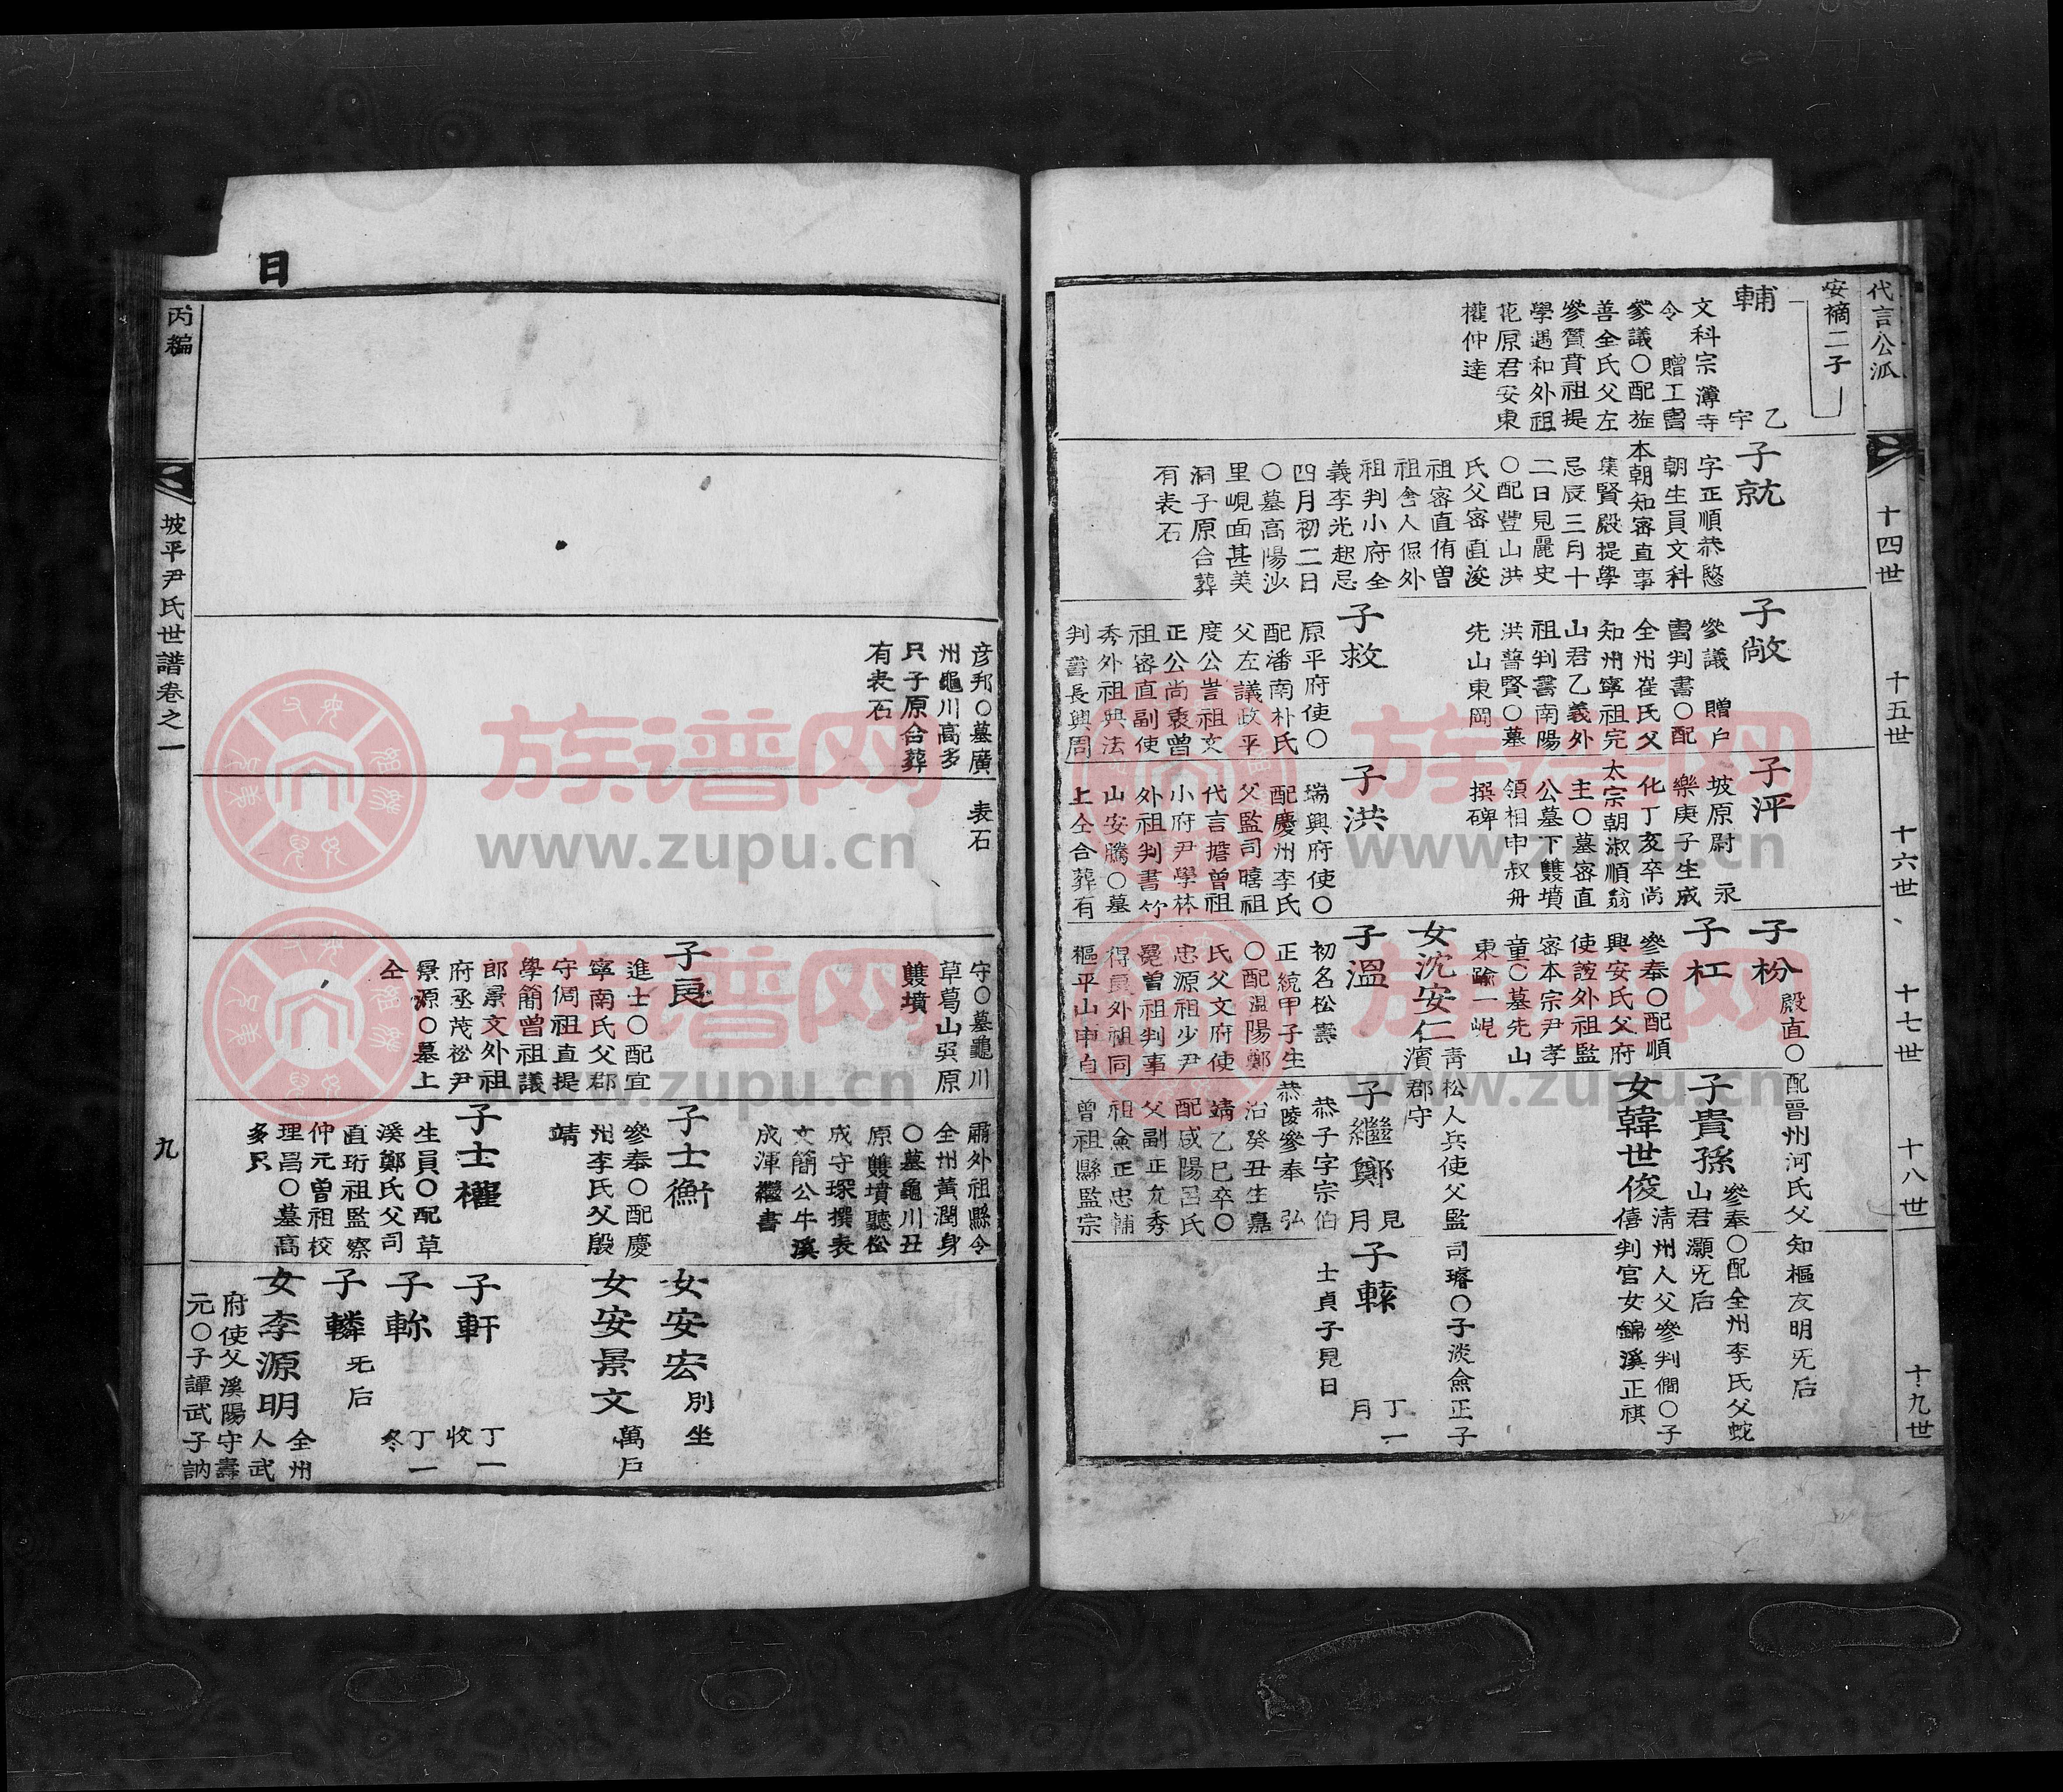 代言公派
十四世
十五世
十六世
十七世
十八世
十九世
安禎二子
輔
乙
宇
文科宗簿寺
令 贈工曹
參議〇配旌
善全氏父左
參贊賁祖提
學遇和外祖
花原君安東
權仲達
子就
字正順恭愍
朝生員文科
本朝知審直事
集賢殿提學
忌辰三月十
二日見麗史
〇配豐山洪
氏父審直浚
祖審直侑曾
祖舍人侃外
祖判小府全
義李光起忌
四月初二日
〇墓高陽沙
里峴面甚美
洞子原合葬
有表石
子敞
參議 贈戶
曹判書〇配
全州崔氏父
知州寧祖完
山君乙義外
祖判書南陽
洪普賢〇墓
先山東岡
子救
原平府使〇
配潘南朴氏
父左議政平
度公訔祖文
正公尚衷曾
祖審直副使
秀外祖典法
判書長興周
彦邦〇墓廣
州龜川高多
只子原合葬
有表石
子泙
坡原尉 永
樂庚子生成
化丁亥卒尚
太宗朝淑順翁
主〇墓審直
公墓下雙墳
領相申叔舟
撰碑
子洪
瑞興府使〇
配慶州李氏
父監司暿祖
代言擔曾祖
小府尹學林
外祖判書竹
山安騰〇墓
上仝合葬有
表石
子枌
殿直〇配晋州河氏父知樞友明旡后
子杠
參奉〇配順
興安氏父府
使誼外祖監
審本宗尹孝
童〇墓先山
東踰一峴
子貴孫
參奉〇配全州李氏父蛇
山君灝旡后
女韓世俊
淸州人父參判僩〇子
僖判官女錦溪正祺
女沈安仁
靑松人兵使父監司璿〇子淡僉正子
濱郡守
子溫
初名松壽
正統甲子生
〇配溫陽鄭
氏父文府使
忠源祖少尹
㫤曾祖判事
得良外祖同
樞平山申自
守〇墓龜川
草葛山吳原
雙墳
子繼鄭
見
月
恭子字宗伯
恭陵參奉 弘
治癸丑生嘉
靖乙巳卒〇
配咸陽呂氏
父副正允秀
祖僉正忠輔
曾祖縣監宗
肅外祖縣令
全州黃潤身
〇墓龜川丑
原雙墳聽松
成守琛撰表
文簡公牛溪
成渾繼書
子䡵
丁一
月
士貞子見日
子良
進士〇配宜
寧南氏父郡
守倜祖直提
學簡曾祖議
郎景文外祖
府丞茂松尹
景源〇墓上
仝
子士衡
參奉〇配慶
州李氏父殷
靖
女安宏
別坐
女安景文
萬戶
子士權
生員〇配草
溪鄭氏父司
直珩祖監察
仲元曾祖校
理昌〇墓高
多只
子軒
丁一
收
子軫
丁一
冬
子轔
旡后
女李源明
全州
人武
府使父溪陽守壽
元〇子譚武子訥
日
丙編
坡平尹氏世譜卷之一
九
族谱网
www.zupu.cn
族谱网
www.zupu.cn
族谱网
www.zupu.cn
族谱网
www.zupu.cn